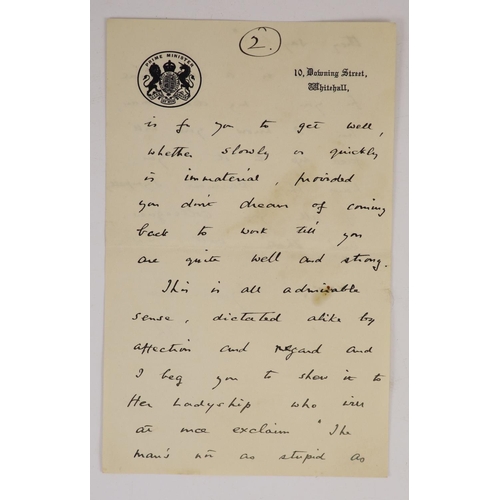 2.
PRIME MINISTER
10, Downing Street,
Whitehall.
is for you to get well,
whether slowly or quickly
is immaterial, provided
you don't dream of coming
back to work till you
are quite well and strong.
This is all admirable
sense, dictated alike by
affection and regard and
I beg you to show it to
Her Ladyship who will
at once exclaim "The
man's not as stupid as